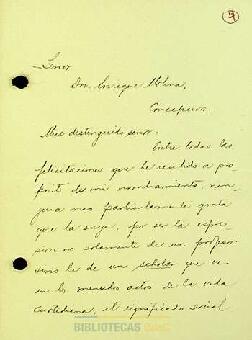 5
Señor
Don Enrique Molina,
Concepción
Mui distinguido señor:
Entre todas las
felicitaciones que he recibido a pro-
pósito de mi nombramiento, nin-
guna mas particularmente grata
que la suya, por ser la espre-
sion no solamente de un profesor
sino la de un scholar que es
en los menudos actos de la vida
cotidiana, el significado social
BIBLIOTECAS